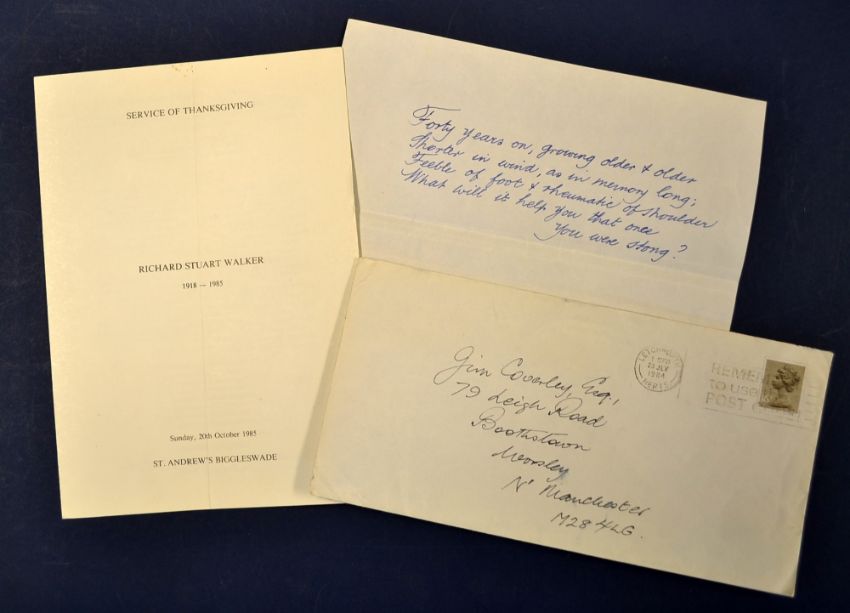 SERVICE OF THANKSGIVING
RICHARD STUART WALKER
1918 — 1985
Sunday, 20th October 1985
ST. ANDREW'S BIGGLESWADE
Forty years on, growing older & older
Shorter in wind, as in memory long;
Feeble of foot & rheumatic of shoulder
What will it help you that once
You were stong?
Jim Coverley, Esq.,
79 Leigh Road
Boothstown
Worsley
Nr Manchester
M28 4LG.
LETCHWORTH
1984
HERTS
TO USE
POST